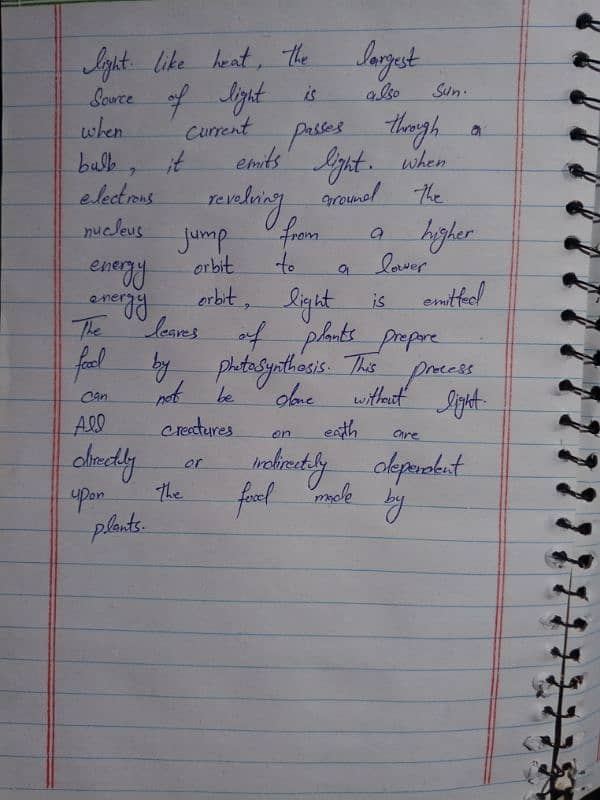 light. like heat, the largest
Source of light is also Sun.
when current passes through a
bulb, it emits light. when
electrons revolving around the
nucleus jump from a higher
energy orbit to a lower
energy orbit, light is emitted
The leaves of plants prepare
food by photosynthesis. This process
can not be done without light.
All creatures on eath are
directly or indirectly dependent
upon the food made by
plants.